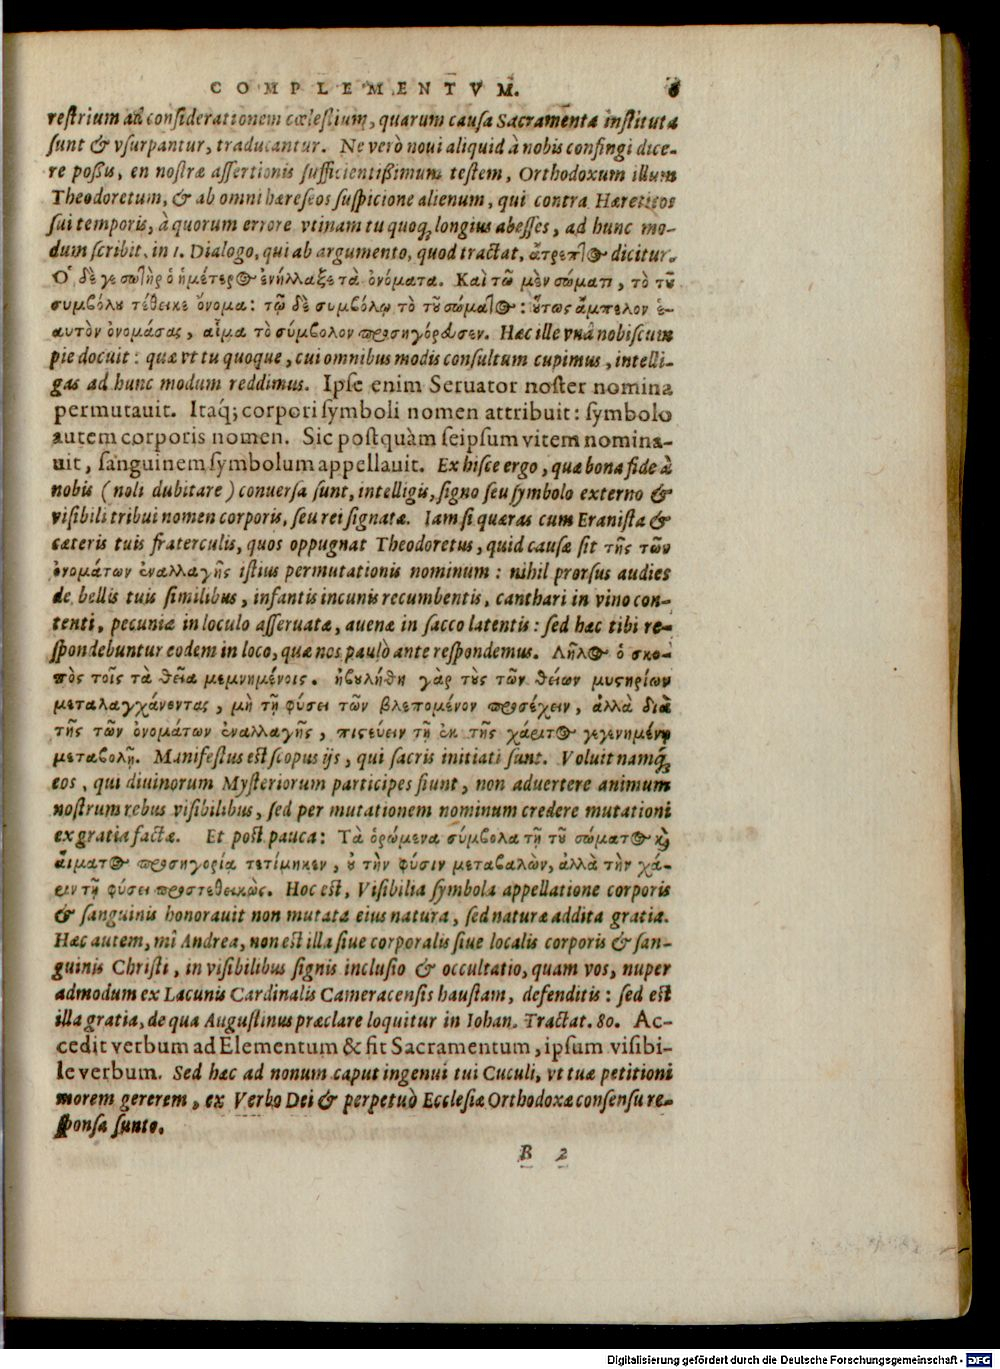 COMPLEMENTVM.
restrium ad considerationem cœlestium, quarum causa Sacramenta instituta
sunt & vsurpantur, traducantur. Ne verò noui aliquid à nobis confingi dice-
re poßis, en nostræ assertionis sufficientißimum testem, Orthodoxum illum
Theodoretum, & ab omni hæreseos suspicione alienum, qui contra Hæreticos
sui temporis, à quorum errore vtinam tu quoq; longius abesses, ad hunc mo-
dum scribit, in 1. Dialogo, qui ab argumento, quod tractat, ἄτρεπτος dicitur.
Ὁ δέ γε σωτὴρ ὁ ἡμέτερος ἐνήλλαξε τὰ ὀνόματα. Καὶ τῷ μὲν σώματι, τὸ τοῦ
συμβόλου τέθεικε ὄνομα: τῷ δὲ συμβόλῳ τὸ τοῦ σώματος: οὕτως ἄμπελον ἑ-
αυτὸν ὀνομάσας, αἷμα τὸ σύμβολον προσηγόρευσεν. Hæc ille vnà nobiscum
pie docuit: quæ vt tu quoque, cui omnibus modis consultum cupimus, intelli-
gas ad hunc modum reddimus. Ipse enim Seruator noster nomina
permutauit. Itaq; corpori symboli nomen attribuit: symbolo
autem corporis nomen. Sic postquàm seipsum vitem nomina-
uit, sanguinem symbolum appellauit. Ex hisce ergo, quæ bona fide à
nobis (noli dubitare) conuersa sunt, intelligis, signo seu symbolo externo &
visibili tribui nomen corporis, seu rei signatæ. Iam si quæras cum Eranista &
cæteris tuis fraterculis, quos oppugnat Theodoretus, quid causæ sit τῆς τῶν
ὀνομάτων ἐναλλαγῆς istius permutationis nominum: nihil prorsus audies
de bellis tuis similibus, infantis in cunis recumbentis, canthari in vino con-
tenti, pecuniæ in loculo asseruatæ, auenæ in sacco latentis: sed hæc tibi re-
spondebuntur eodem in loco, quæ nos paulò ante respondemus. Δῆλος ὁ σκο-
πὸς τοῖς τὰ θεῖα μεμνημένοις. ἠβουλήθη γὰρ τοὺς τῶν θείων μυστηρίων
μεταλαγχάνοντας, μὴ τῇ φύσει τῶν βλεπομένον προσέχειν, ἀλλὰ διὰ
τῆς τῶν ὀνομάτων ἐναλλαγῆς, πιστεύειν τῇ ἐκ τῆς χάριτος γεγενημένῃ
μεταβολῇ. Manifestus est scopus ijs, qui sacris initiati sunt. Voluit namq;
eos, qui diuinorum Mysteriorum participes fiunt, non aduertere animum
nostrum rebus visibilibus, sed per mutationem nominum credere mutationi
ex gratia factæ. Et post pauca: Τὰ ὁρώμενα σύμβολα τῇ τοῦ σώματος καὶ
αἵματος προσηγορίᾳ τετίμηκεν, οὐ τὴν φύσιν μεταβαλὼν, ἀλλὰ τὴν χά-
ριν τῇ φύσει προστεθεικώς. Hoc est, Visibilia symbola appellatione corporis
& sanguinis honorauit non mutata eius natura, sed naturæ addita gratia.
Hæc autem, mi Andrea, non est illa siue corporalis siue localis corporis & san-
guinis Christi, in visibilibus signis inclusio & occultatio, quam vos, nuper
admodum ex Lacunis Cardinalis Cameracensis haustam, defenditis: sed est
illa gratia, de qua Augustinus præclare loquitur in Iohan. Tractat. 80. Ac-
cedit verbum ad Elementum & fit Sacramentum, ipsum visibi-
le verbum. Sed hæc ad nonum caput ingenui tui Cuculi, vt tuæ petitioni
morem gererem, ex Verbo Dei & perpetuò Ecclesiæ Orthodoxæ consensu re-
sponsa sunto.
B 2
Digitalisierung gefördert durch die Deutsche Forschungsgemeinschaft - DFG